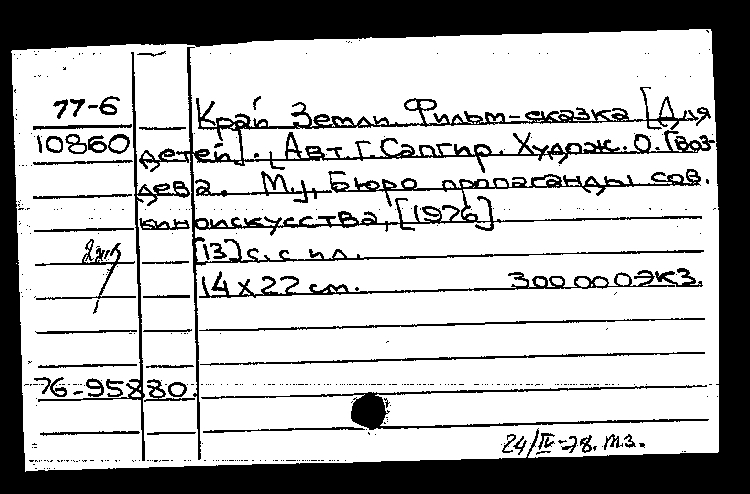 77-6 Край Земли. Фильм-сказка [Для
10860 детей]. [Авт. Г. Сапгир. Худож. О. Гвоз-
дева. М., Бюро пропаганды сов.
киноискусства, [1976].
[13] с. с ил.
14 х 22 см. 300 000 экз.
76-95880.
24/IV-78. т.з.